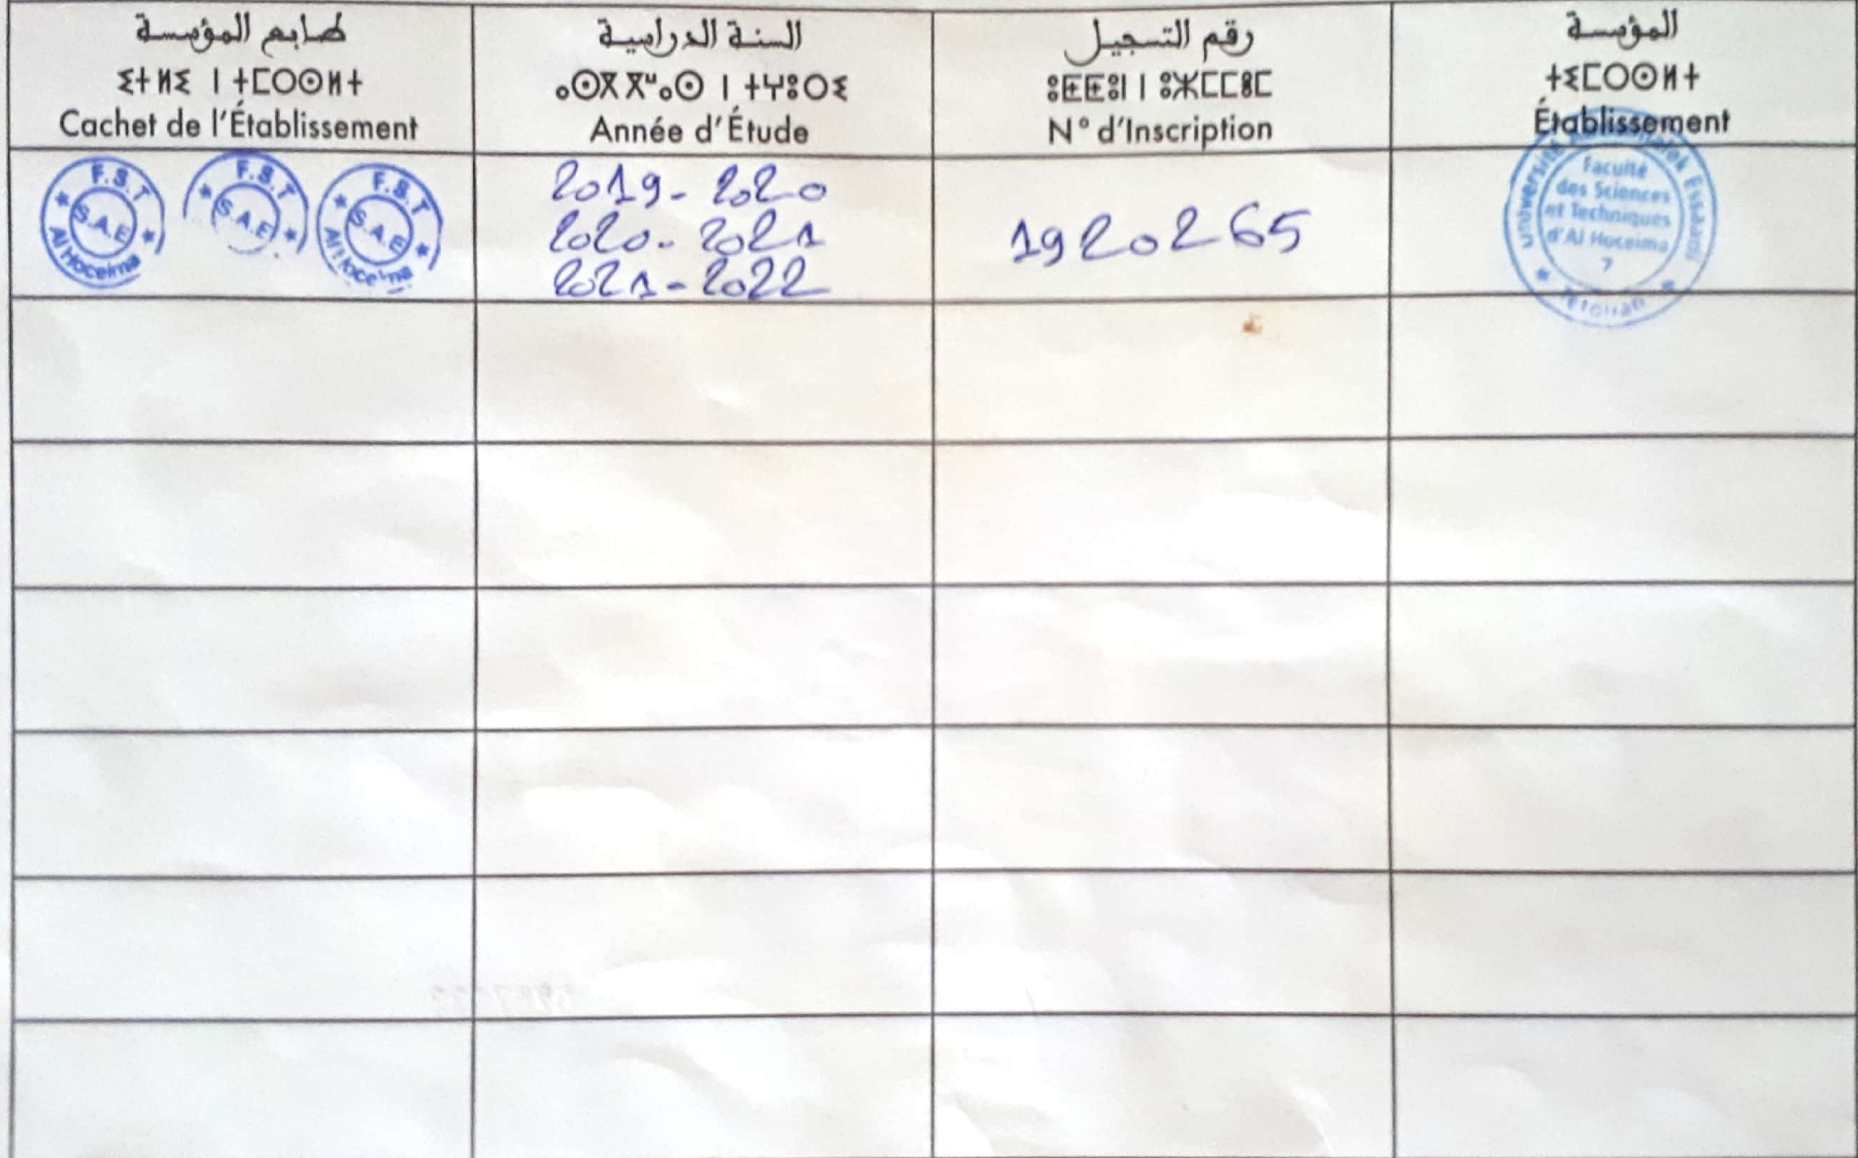 طابع المؤسسة
ⵉⵜⵍⵉ ⵏ ⵜⵎⵔⵙⵍⵜ
Cachet de l'Établissement
السنة الدراسية
ⴰⵙⴳⴳⵯⴰⵙ ⵏ ⵜⵖⵓⵔⵉ
Année d'Étude
رقم التسجيل
ⵓⵟⵟⵓⵏ ⵏ ⵓⵣⵎⵎⴻⵎ
N° d'Inscription
المؤسسة
ⵜⵉⵎⵔⵙⵍⵜ
Établissement
F.S.T
S.A.E
Al Hoceima
F.S.T
S.A.E
F.S.T
S.A.E
Al Hoceima
2019-2020
2020-2021
2021-2022
1920265
Université Essaadi
Faculté
des Sciences
et Techniques
d'Al Hoceima
7
Tétouan